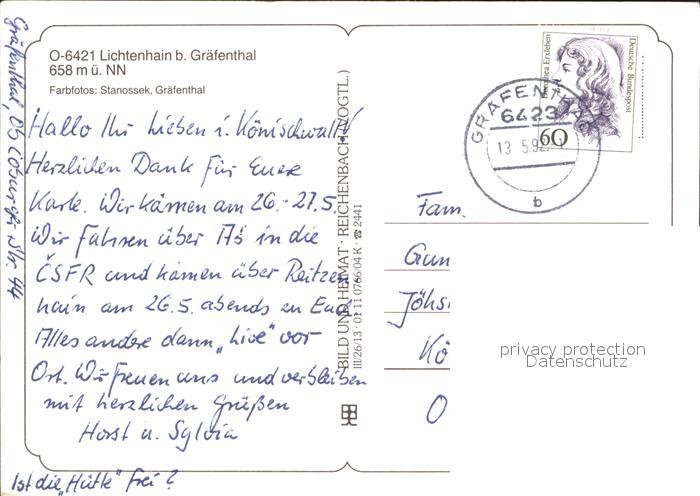 O-6421 Lichtenhain b. Gräfenthal
658 m ü. NN
Farbfotos: Stanossek, Gräfenthal
Hallo Ihr Lieben i. Königswalde!
Herzlichen Dank für Eure
Karte. Wir kämen am 26.-27.5.
Wir fahren über in die
ČSFR und kämen über Reitzen-
hain am 26.5. abends zu Euch.
Alles andere dann „Live" vor
Ort. Wir freuen uns und verbleiben
mit herzlichen Grüßen
Horst u. Sylvia
Ist die „Hütte" frei?
Gräfenthal, Coburger Str. 44
BILD UND HEIMAT · REICHENBACH (VOGTL.)
III/26/13 · 01 11 0766/04 K · ☎ 2441
Deutsche Bundespost
Dorothea Erxleben
60
GRÄFENTHAL
6423
13.5.92
b
Fam.
Gun
Jöhs
Kö
O
privacy protection
Datenschutz